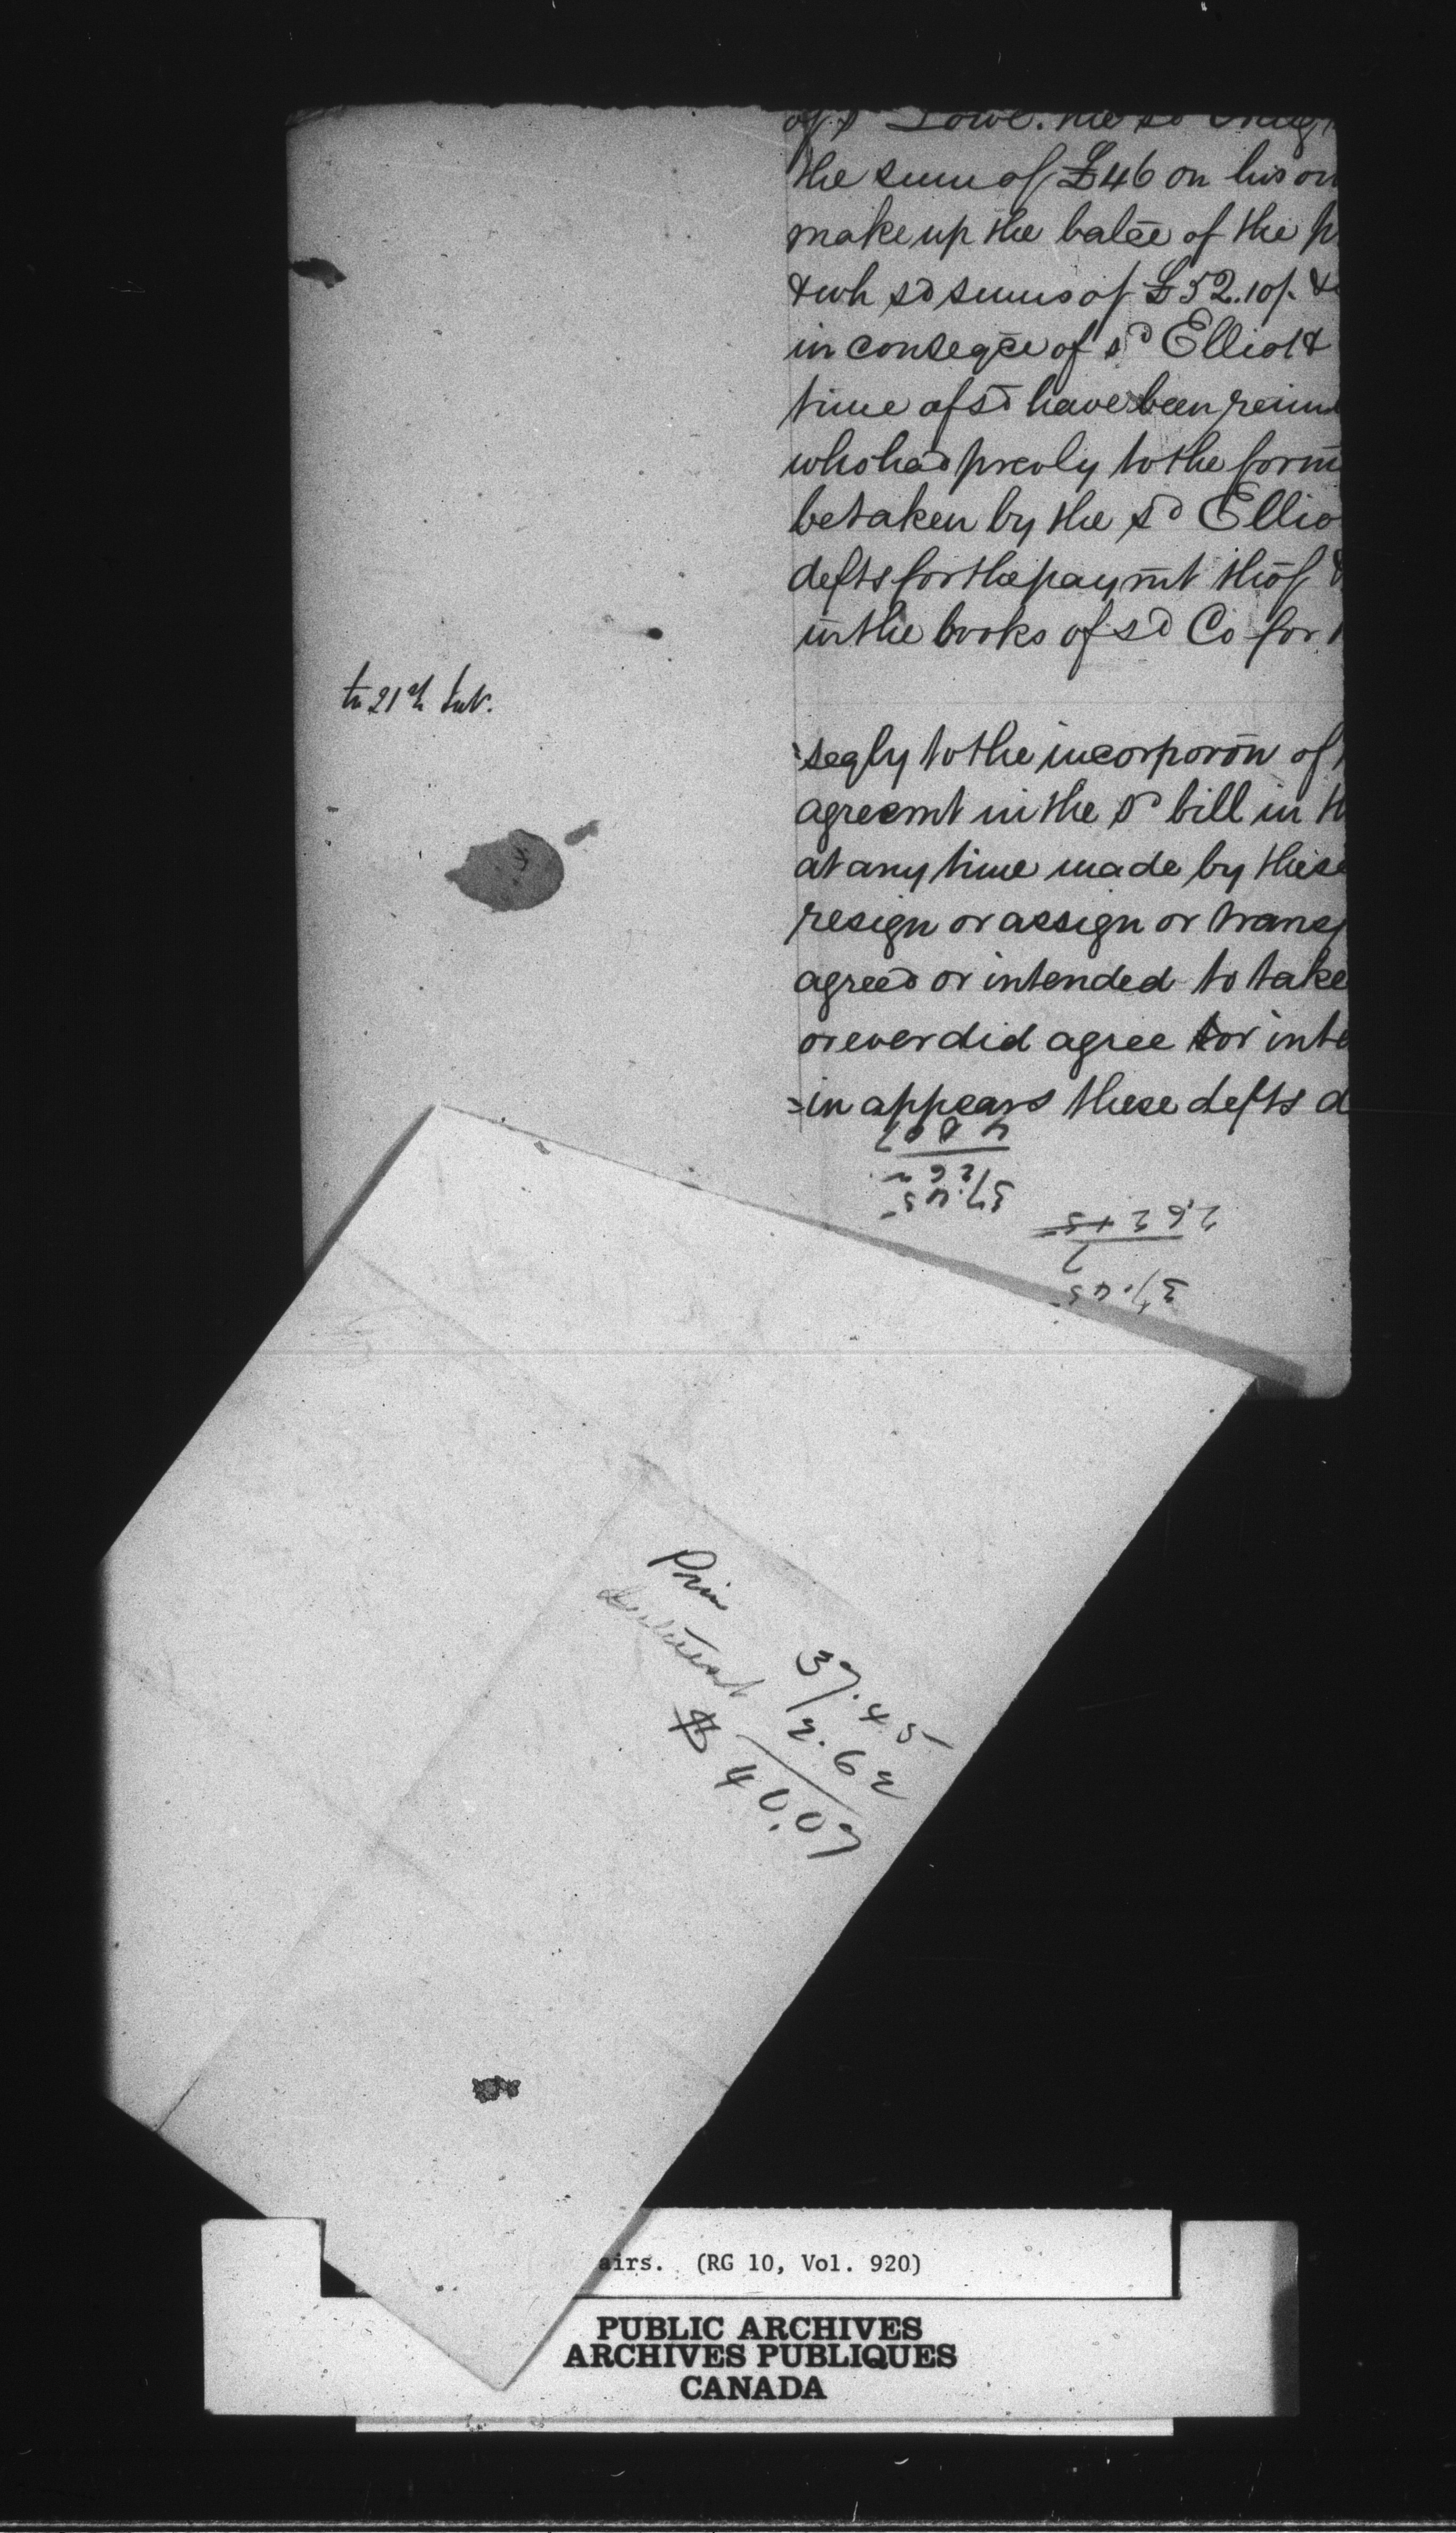 the sum of £46 on his
make up the balce of the
& wh sd sums of £52.10/.
in conseqce of sd Elliot &
time afsd have been
who had prevly to the
be taken by the sd Ellio
defts for the paymt thof
in the books of sd Co for
to 21st Int.
seqly to the incorporon of
agreemt in the sd bill in
at any time made by these
resign or assign or transf
agreed or intended to take
or ever did agree or inte
=in appears these defts d
37.45
2 62
40 07
37.45
7
2.62 15
Prin 37.45
Interest 2.62
$ 40.07
airs. (RG 10, Vol. 920)
PUBLIC ARCHIVES
ARCHIVES PUBLIQUES
CANADA